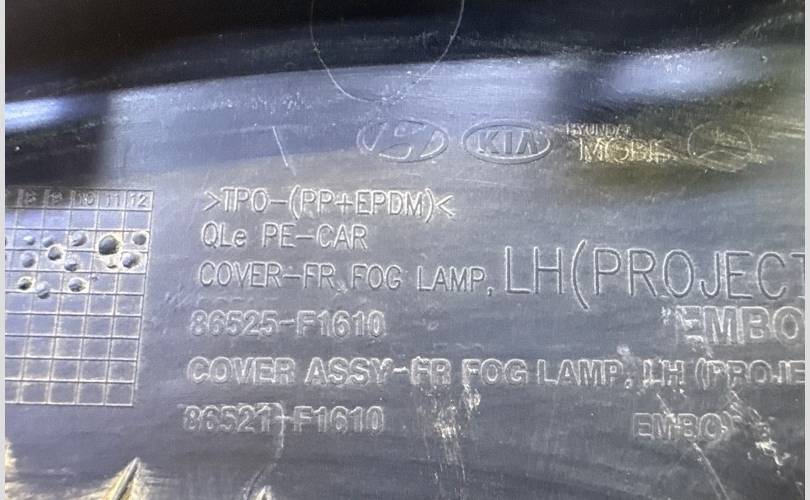 KIA
HYUNDAI
MOBIS
10 11 12
>TPO-(PP+EPDM)<
QLe PE-CAR
COVER-FR FOG LAMP, LH(PROJECT
86525-F1610 EMBO
COVER ASSY-FR FOG LAMP, LH (PROJE
86521-F1610 EMBO